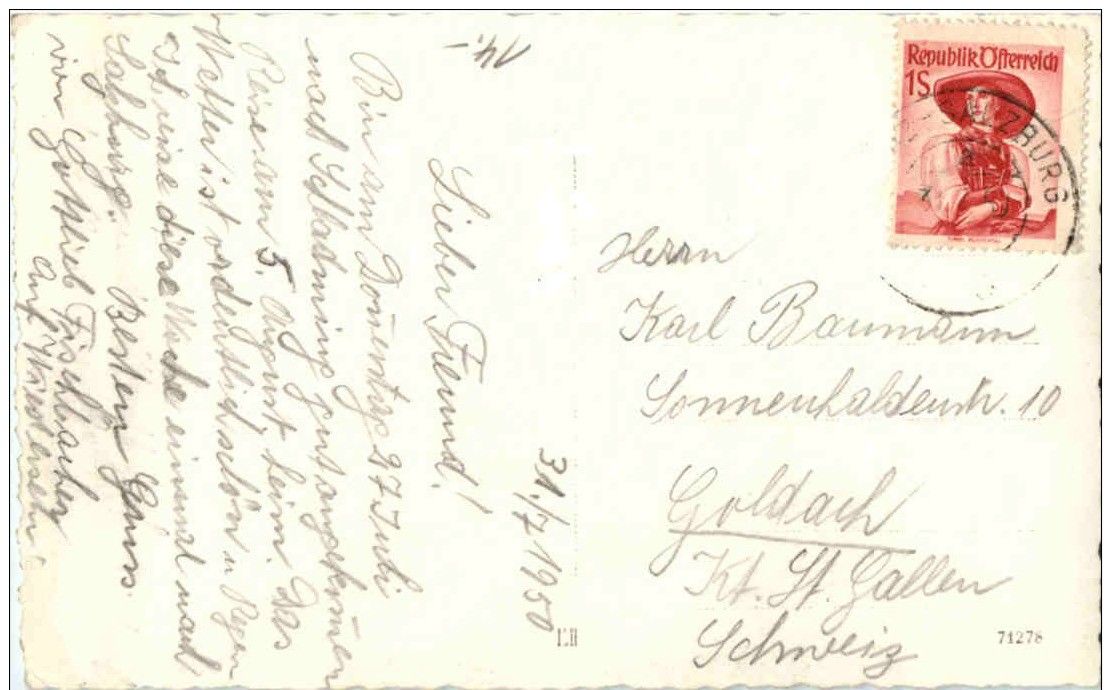 14.-
31./7 1950
Lieber Freund!
Bin am Donerstag 27 Juli
nach Schladming gut angekomen
Reise am 5. August heim. Das
Wetter ist ordentlich schön u Regen
Ich reise diese Woche einmal nach
Salzburg. Besten Gruss
von Gottlieb Fischbacher
Auf Wiedersehn.
Republik Österreich
1S
SALZBURG
Herrn
Karl Baumann
Sonnenhaldenstr. 10
Goldach
Kt. St. Gallen
Schweiz
71278